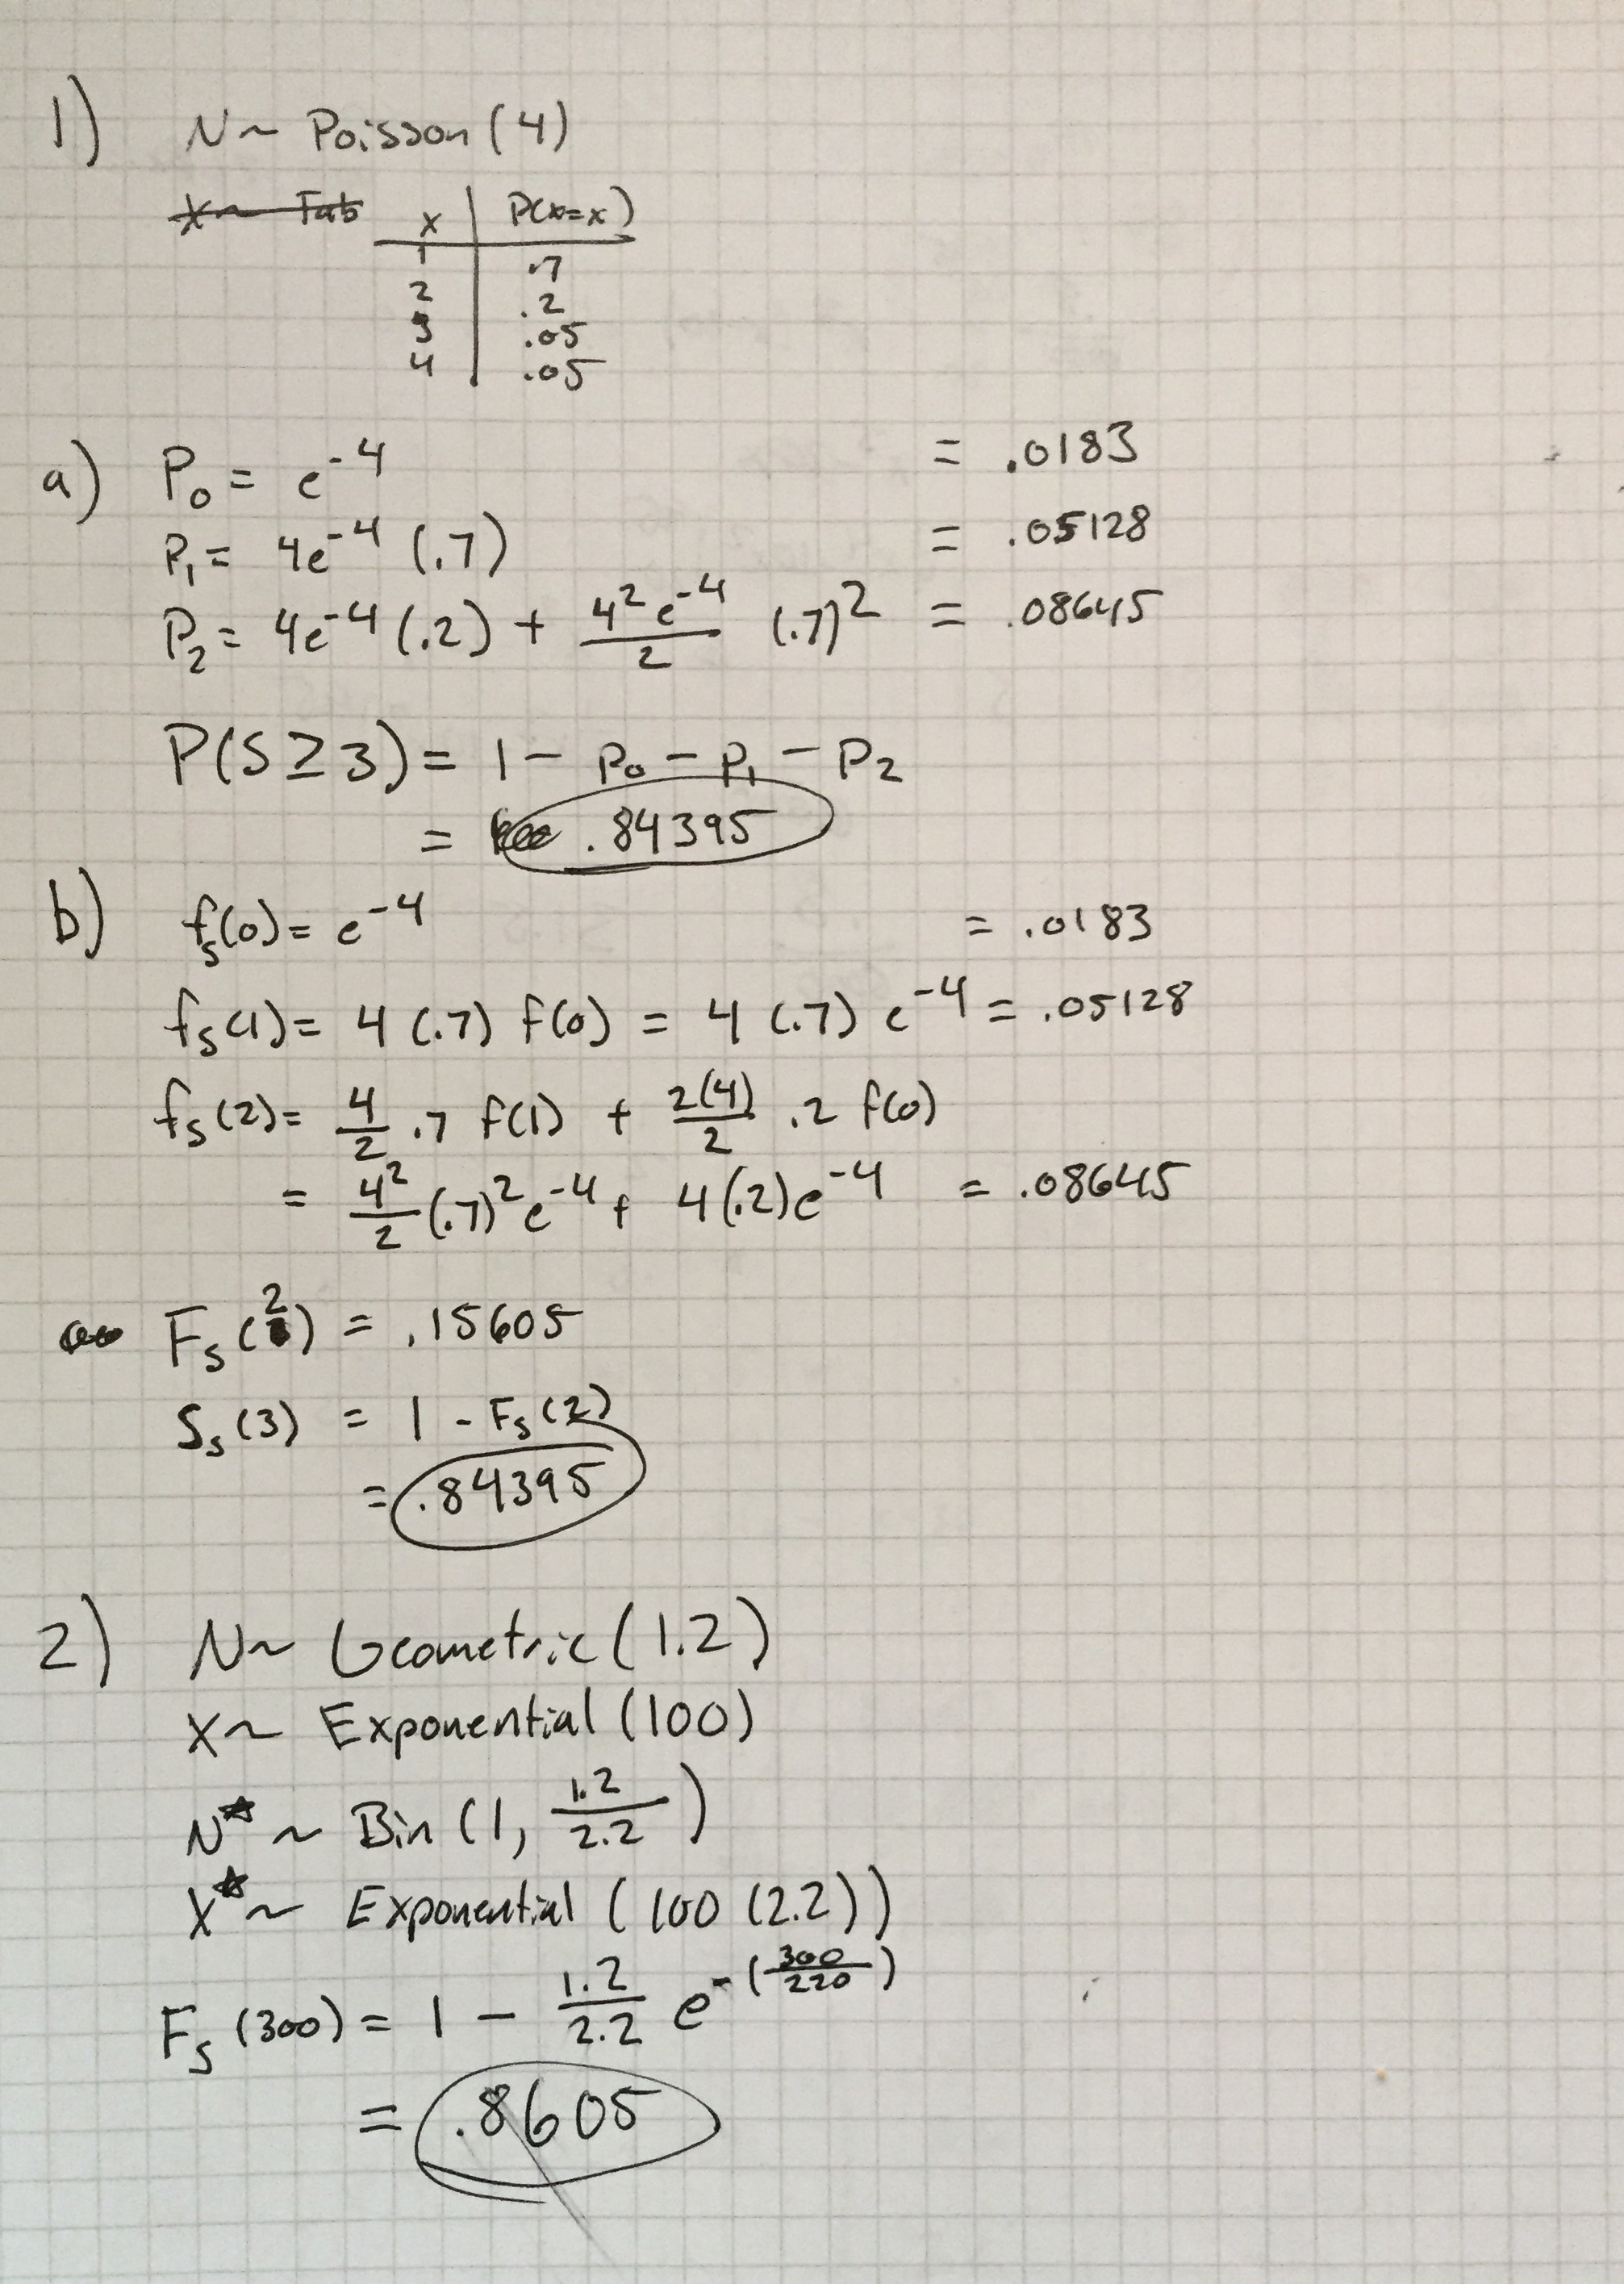 1) N ~ Poisson (4)
X ~ Tab x P(X=x)
1 .7
2 .2
3 .05
4 .05
a) P₀ = e⁻⁴ = .0183
P₁ = 4e⁻⁴ (.7) = .05128
P₂ = 4e⁻⁴ (.2) + 4²e⁻⁴/2 (.7)² = .08645
P(S ≥ 3) = 1 - P₀ - P₁ - P₂
= .84395
b) fₛ(0) = e⁻⁴ = .0183
fₛ(1) = 4 (.7) f(0) = 4 (.7) e⁻⁴ = .05128
fₛ(2) = 4/2 .7 f(1) + 2(4)/2 .2 f(0)
= 4²/2 (.7)² e⁻⁴ + 4(.2)e⁻⁴ = .08645
Fₛ(2) = .15605
Sₛ(3) = 1 - Fₛ(2)
= .84395
2) N ~ Geometric (1.2)
X ~ Exponential (100)
N* ~ Bin (1, 1.2/2.2)
X* ~ Exponential (100 (2.2))
Fₛ(300) = 1 - 1.2/2.2 e^-(300/220)
= .8605